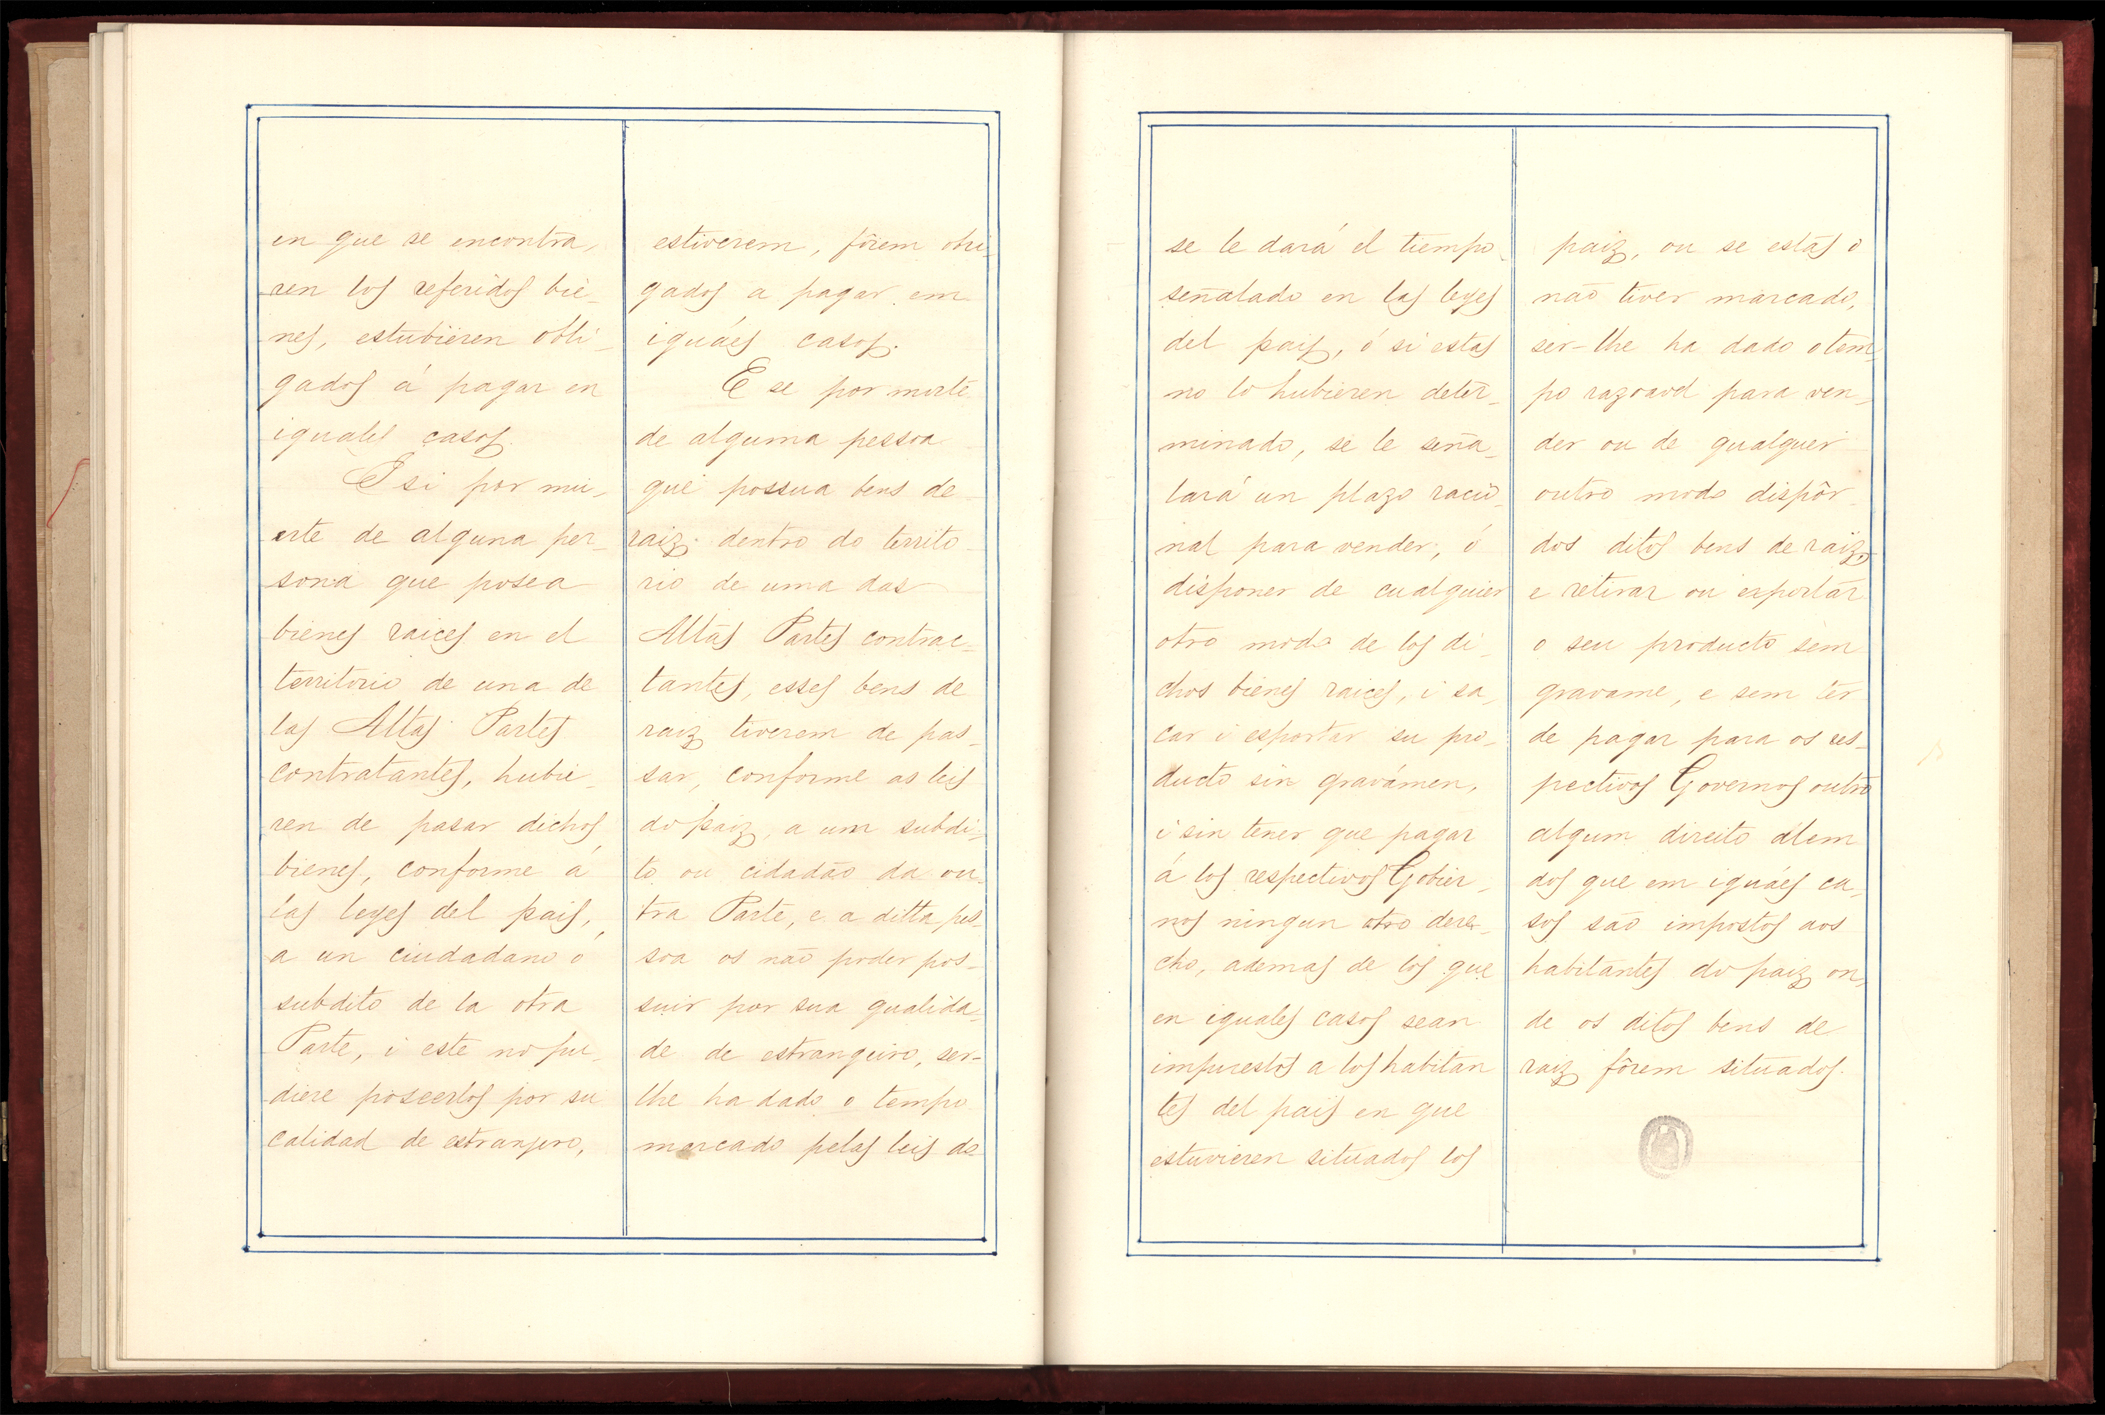 en que se encontra-
ren los referidos bie-
nes, estubieren obli-
gados á pagar en
iguales casos.
E si por mu-
erte de alguna per-
sona que posea
bienes raices en el
territorio de una de
las Altas Partes
contratantes, hubie-
ren de pasar dichos
bienes, conforme á
las leyes del pais,
a un ciudadano ó
subdito de la otra
Parte, i este no pu-
diere poseerlos por su
calidad de estranjero,
estiverem, fôrem obri-
gados a pagar em
iguáes casos.
E se por morte
de alguma pessoa
que possua bens de
raiz dentro do territo-
rio de uma das
Altas Partes contrac-
tantes, esses bens de
raiz tiverem de pas-
sar, conforme as leis
do paiz, a um subdi-
to ou cidadão da ou-
tra Parte, e a ditta pes-
soa os não poder pos-
suir por sua qualida-
de de estrangeiro, ser-
lhe ha dado o tempo
marcado pelas leis do
se le dará el tiempo
señalado en las leyes
del pais, ó si estas
no lo hubieren deter-
minado, se le seña-
lará un plazo racio-
nal para vender, ó
disponer de cualquier
otro modo de los di-
chos bienes raices, i sa-
car i esportar su pro-
ducto sin gravámen,
i sin tener que pagar
á los respectivos Gobier-
nos ningun otro dere-
cho, ademas de los que
en iguales casos sean
impuestos a los habitan
tes del pais en que
estuvieren situados los
paiz, ou se estas o
não tiver marcado,
ser-lhe ha dado o tem-
po razoavel para ven-
der ou de qualquer
outro modo dispôr
dos ditos bens de raiz,
e retirar ou exportar
o seu producto sem
gravame, e sem ter
de pagar para os res-
pectivos Governos outro
algum direito álem
dos que em iguáes ca-
sos são impostos aos
habitantes do paiz on-
de os ditos bens de
raiz fôrem situados.